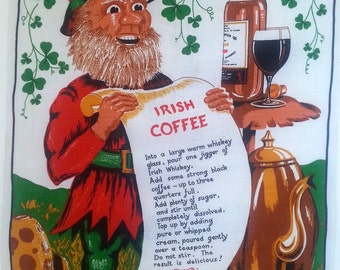 IRISH
COFFEE
Into a large warm whiskey
glass, pour one jigger of
Irish Whiskey.
Add some strong black
coffee - up to three
quarters full.
Add plenty of sugar,
and stir until
completely dissolved.
Top up by adding
pure or whipped
cream, poured gently
over a teaspoon.
Do not stir. The
result is delicious!